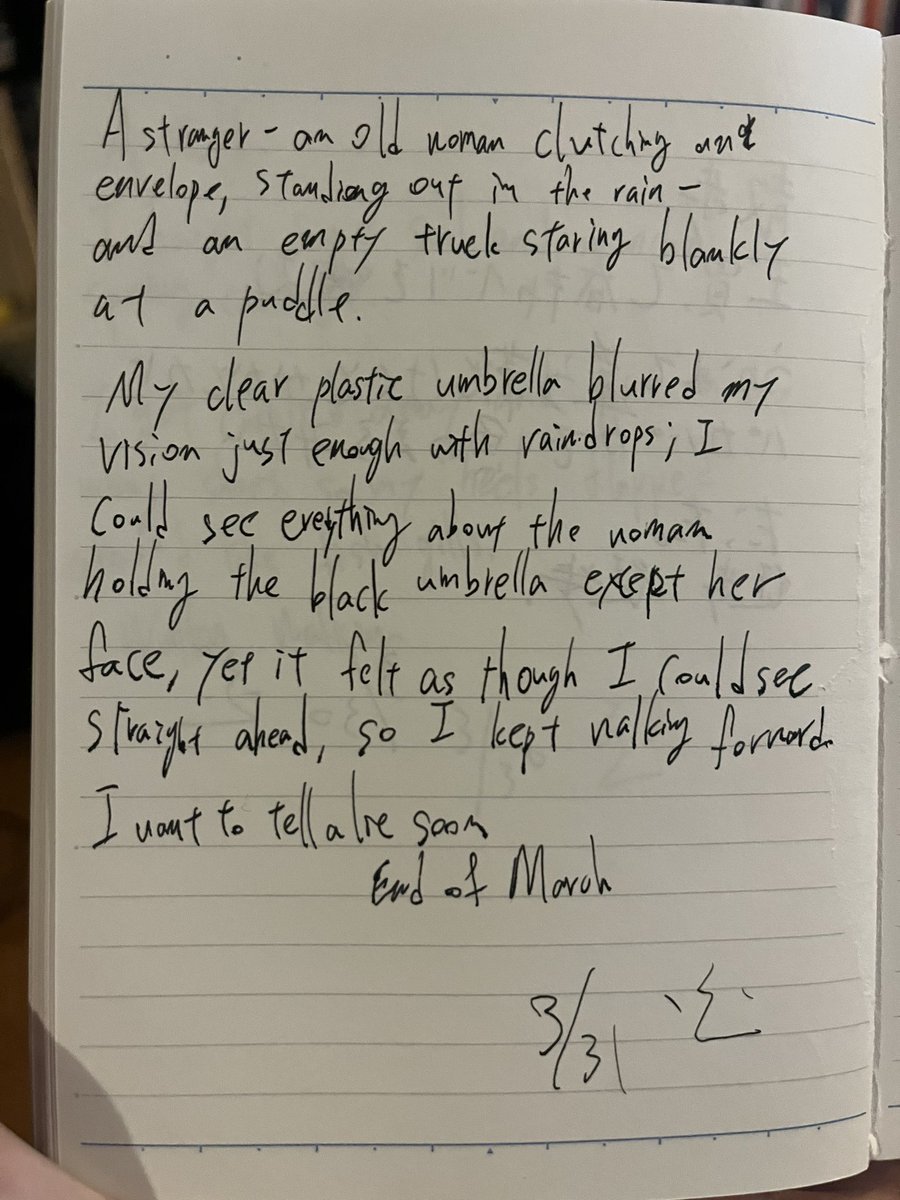 A stranger - an old woman clutching an
envelope, standing out in the rain -
and an empty truck staring blankly
at a puddle.
My clear plastic umbrella blurred my
vision just enough with raindrops; I
could see everything about the woman
holding the black umbrella except her
face, yet it felt as though I could see
straight ahead, so I kept walking forward.
I want to tell a lie soon
End of March
3/31